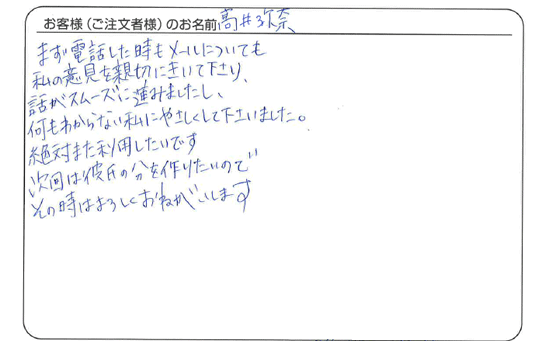 お客様（ご注文者様）のお名前 高井弥奈
まず電話した時もメールについても
私の意見を親切にきいて下さり、
話がスムーズに進みましたし、
何もわからない私にやさしくして下さいました。
絶対また利用したいです
次回は彼氏の分を作りたいので
その時はよろしくおねがいします